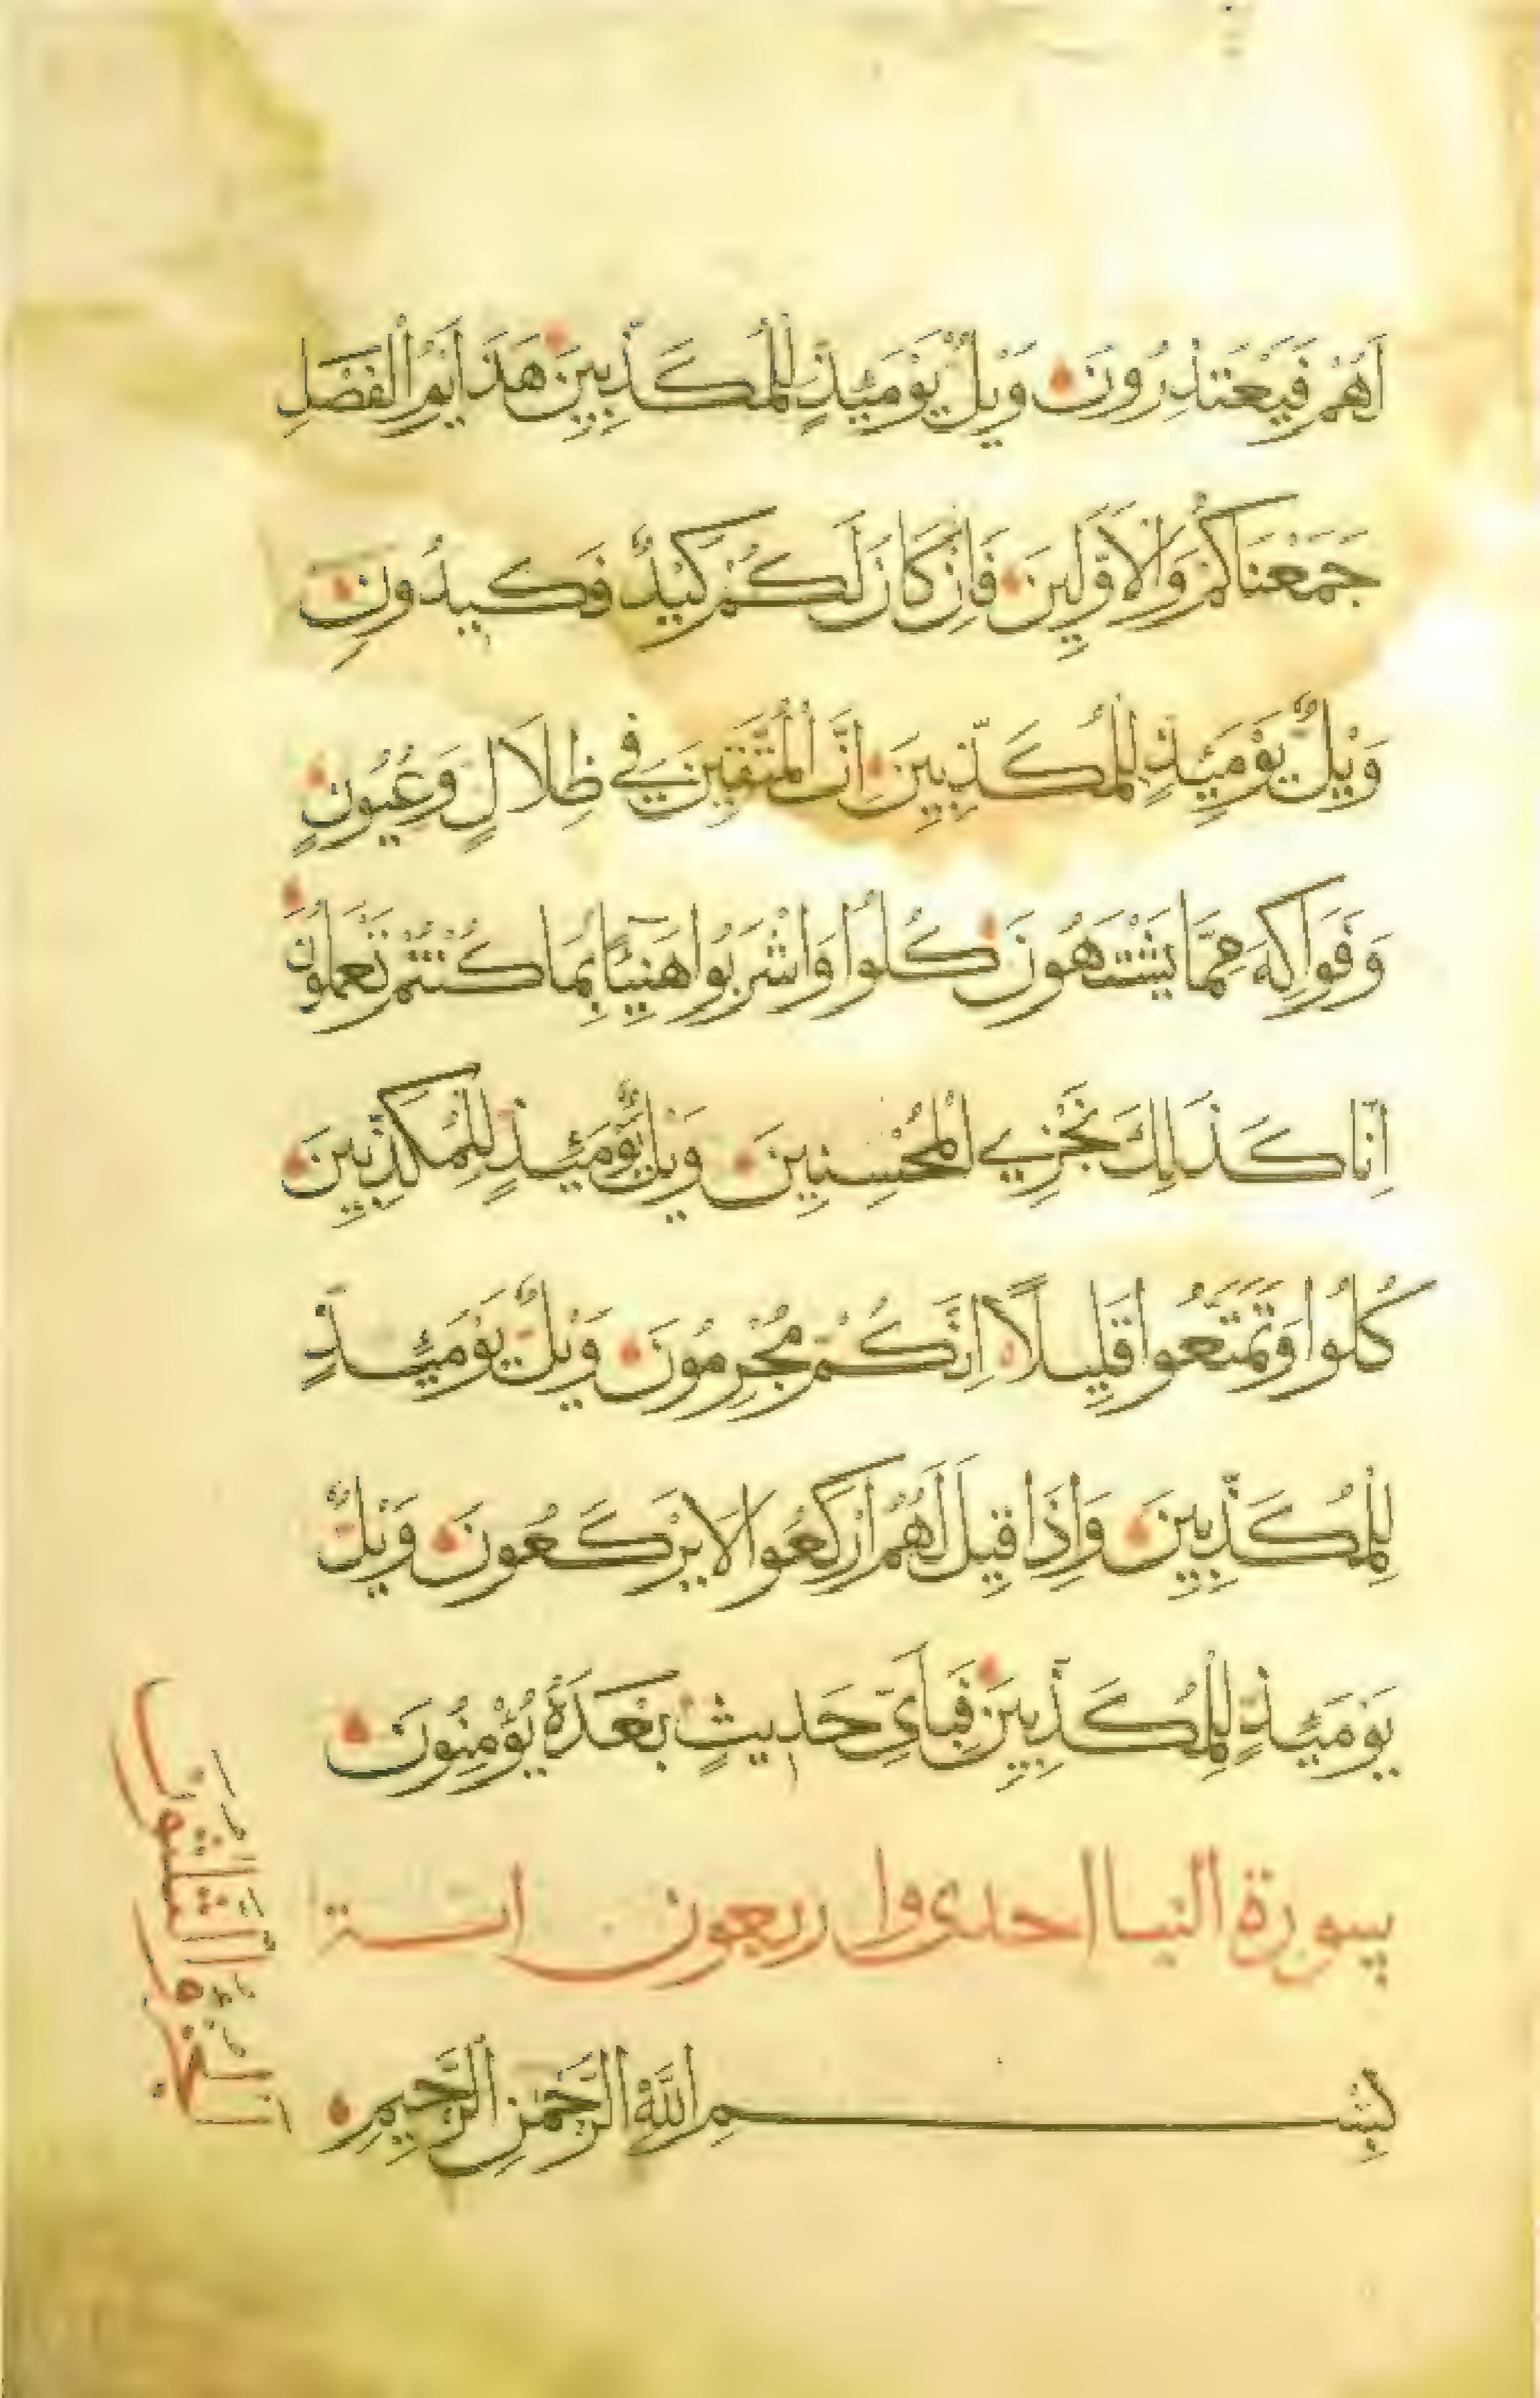 اَهُمْ فَيَعْتَذِرُونَ وَيْلٌ يَوْمَئِذٍ لِلْمُكَذِّبِينَ هَذَا يَوْمُ الْفَصْلِ
جَمَعْنَاكُمْ وَالْاَوَّلِينَ فَاِنْ كَانَ لَكُمْ كَيْدٌ فَكِيدُونِ
وَيْلٌ يَوْمَئِذٍ لِلْمُكَذِّبِينَ اِنَّ الْمُتَّقِينَ فِي ظِلَالٍ وَعُيُونٍ
وَفَوَاكِهَ مِمَّا يَشْتَهُونَ كُلُوا وَاشْرَبُوا هَنِيئًا بِمَا كُنْتُمْ تَعْمَلُونَ
اِنَّا كَذَلِكَ نَجْزِي الْمُحْسِنِينَ وَيْلٌ يَوْمَئِذٍ لِلْمُكَذِّبِينَ
كُلُوا وَتَمَتَّعُوا قَلِيلًا اِنَّكُمْ مُجْرِمُونَ وَيْلٌ يَوْمَئِذٍ
لِلْمُكَذِّبِينَ وَاِذَا قِيلَ لَهُمُ ارْكَعُوا لَا يَرْكَعُونَ وَيْلٌ
يَوْمَئِذٍ لِلْمُكَذِّبِينَ فَبِاَيِّ حَدِيثٍ بَعْدَهُ يُؤْمِنُونَ
سورة النبا احدى واربعون اية
بِسْمِ اللَّهِ الرَّحْمَنِ الرَّحِيمِ
الجزو الثلثون